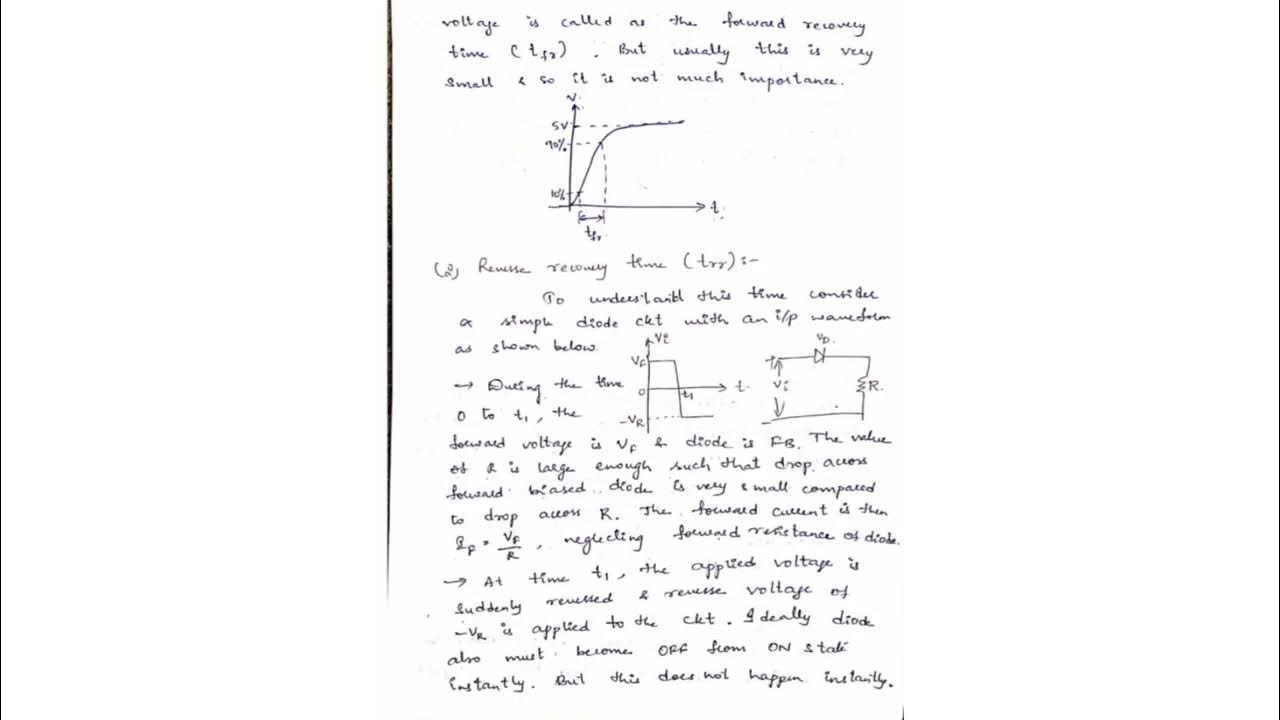 voltage is called as the forward recovery
time (tfr). But usually this is very
small & so it is not much importance.
V
5V
90%
10%
t
tfr
(2) Reverse recovery time (trr):-
To understand this time consider
a simple diode ckt with an i/p waveform
as shown below.
Vi
VF
0
t1
t
-VR
VD
+
Vi
R
→ During the time
0 to t1, the
forward voltage is VF & diode is FB. The value
of R is large enough such that drop across
forward biased diode is very small compared
to drop across R. The forward current is then
IF = VF/R, neglecting forward resistance of diode.
→ At time t1, the applied voltage is
suddenly reversed & reverse voltage of
-VR is applied to the ckt. Ideally diode
also must become OFF from ON state
instantly. But this does not happen instantly.